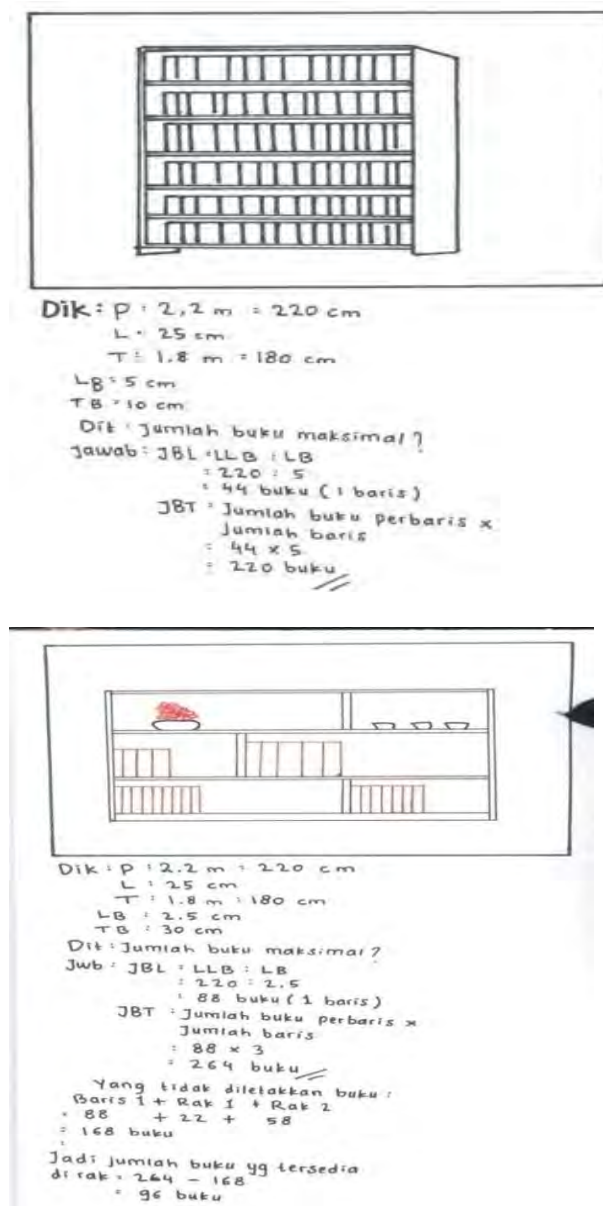 Dik : P : 2,2 m = 220 cm
L : 25 cm
T : 1.8 m = 180 cm
LB : 5 cm
TB : 10 cm
Dit : Jumlah buku maksimal ?
Jawab : JBL : LLB : LB
: 220 : 5
: 44 buku ( 1 baris )
JBT : Jumlah buku perbaris x
Jumlah baris
: 44 x 5
: 220 buku
Dik : P : 2.2 m : 220 cm
L : 25 cm
T : 1.8 m : 180 cm
LB : 2.5 cm
TB : 30 cm
Dit : Jumlah buku maksimal ?
Jwb : JBL : LLB : LB
: 220 : 2.5
: 88 buku ( 1 baris )
JBT : Jumlah buku perbaris x
Jumlah baris
: 88 x 3
= 264 buku
Yang tidak diletakkan buku :
Baris 1 + Rak 1 + Rak 2
= 88 + 22 + 58
= 168 buku
Jadi jumlah buku yg tersedia
di rak = 264 - 168
= 96 buku